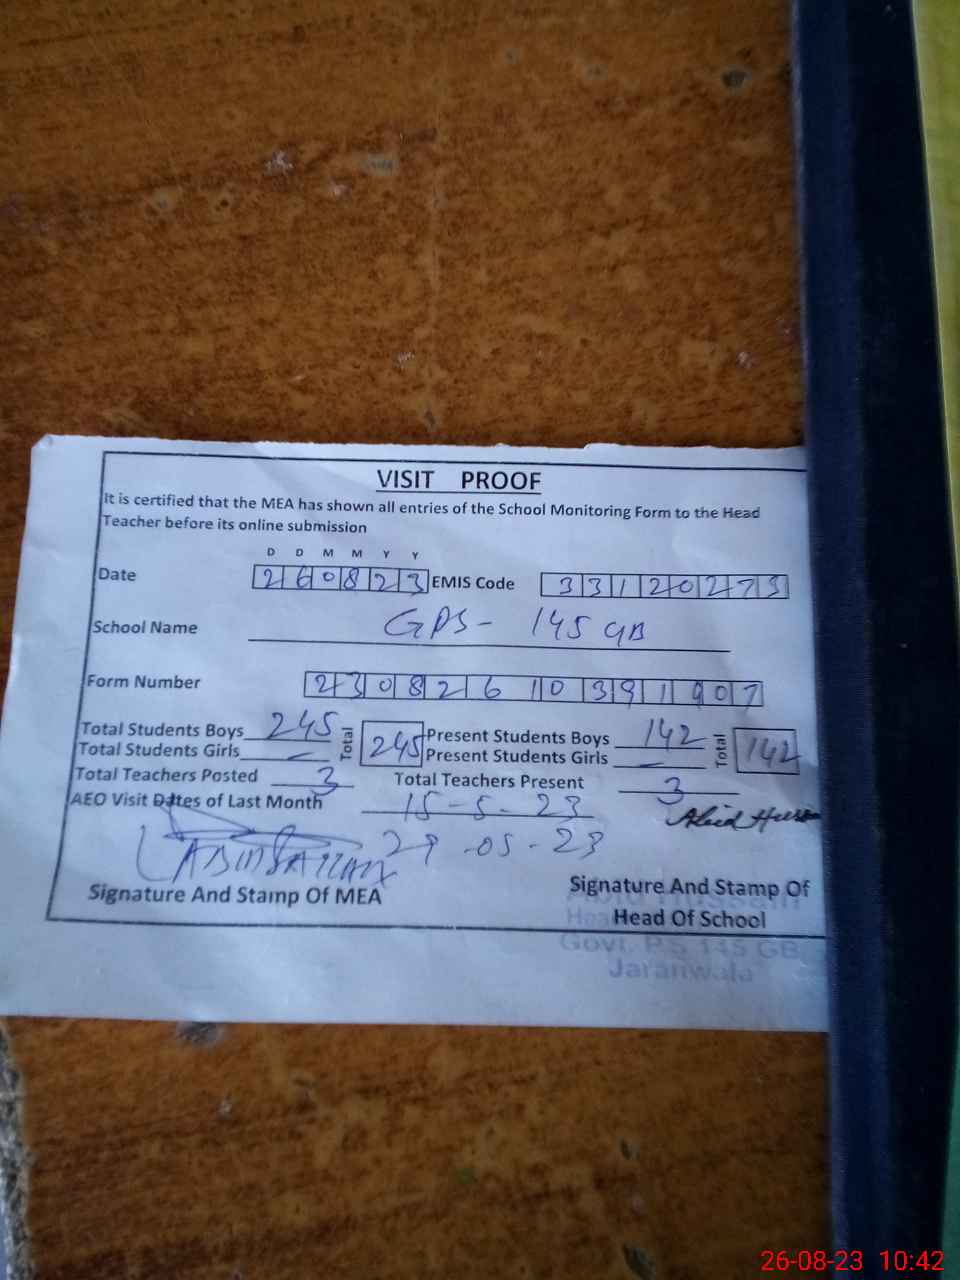 VISIT PROOF
It is certified that the MEA has shown all entries of the School Monitoring Form to the Head
Teacher before its online submission
D D M M Y Y
Date 260823 EMIS Code 33120273
School Name GPS - 145 GB
Form Number 230826 10 391 907
Total Students Boys 245 Total 245 Present Students Boys 142 Total 142
Total Students Girls — Present Students Girls —
Total Teachers Posted 3 Total Teachers Present 3
AEO Visit Dates of Last Month 15-5-23
29-05-23
Abid Hussain
Signature And Stamp Of MEA Signature And Stamp Of
Head Of School
Govt. P.S 145 GB
Jaranwala
26-08-23 10:42